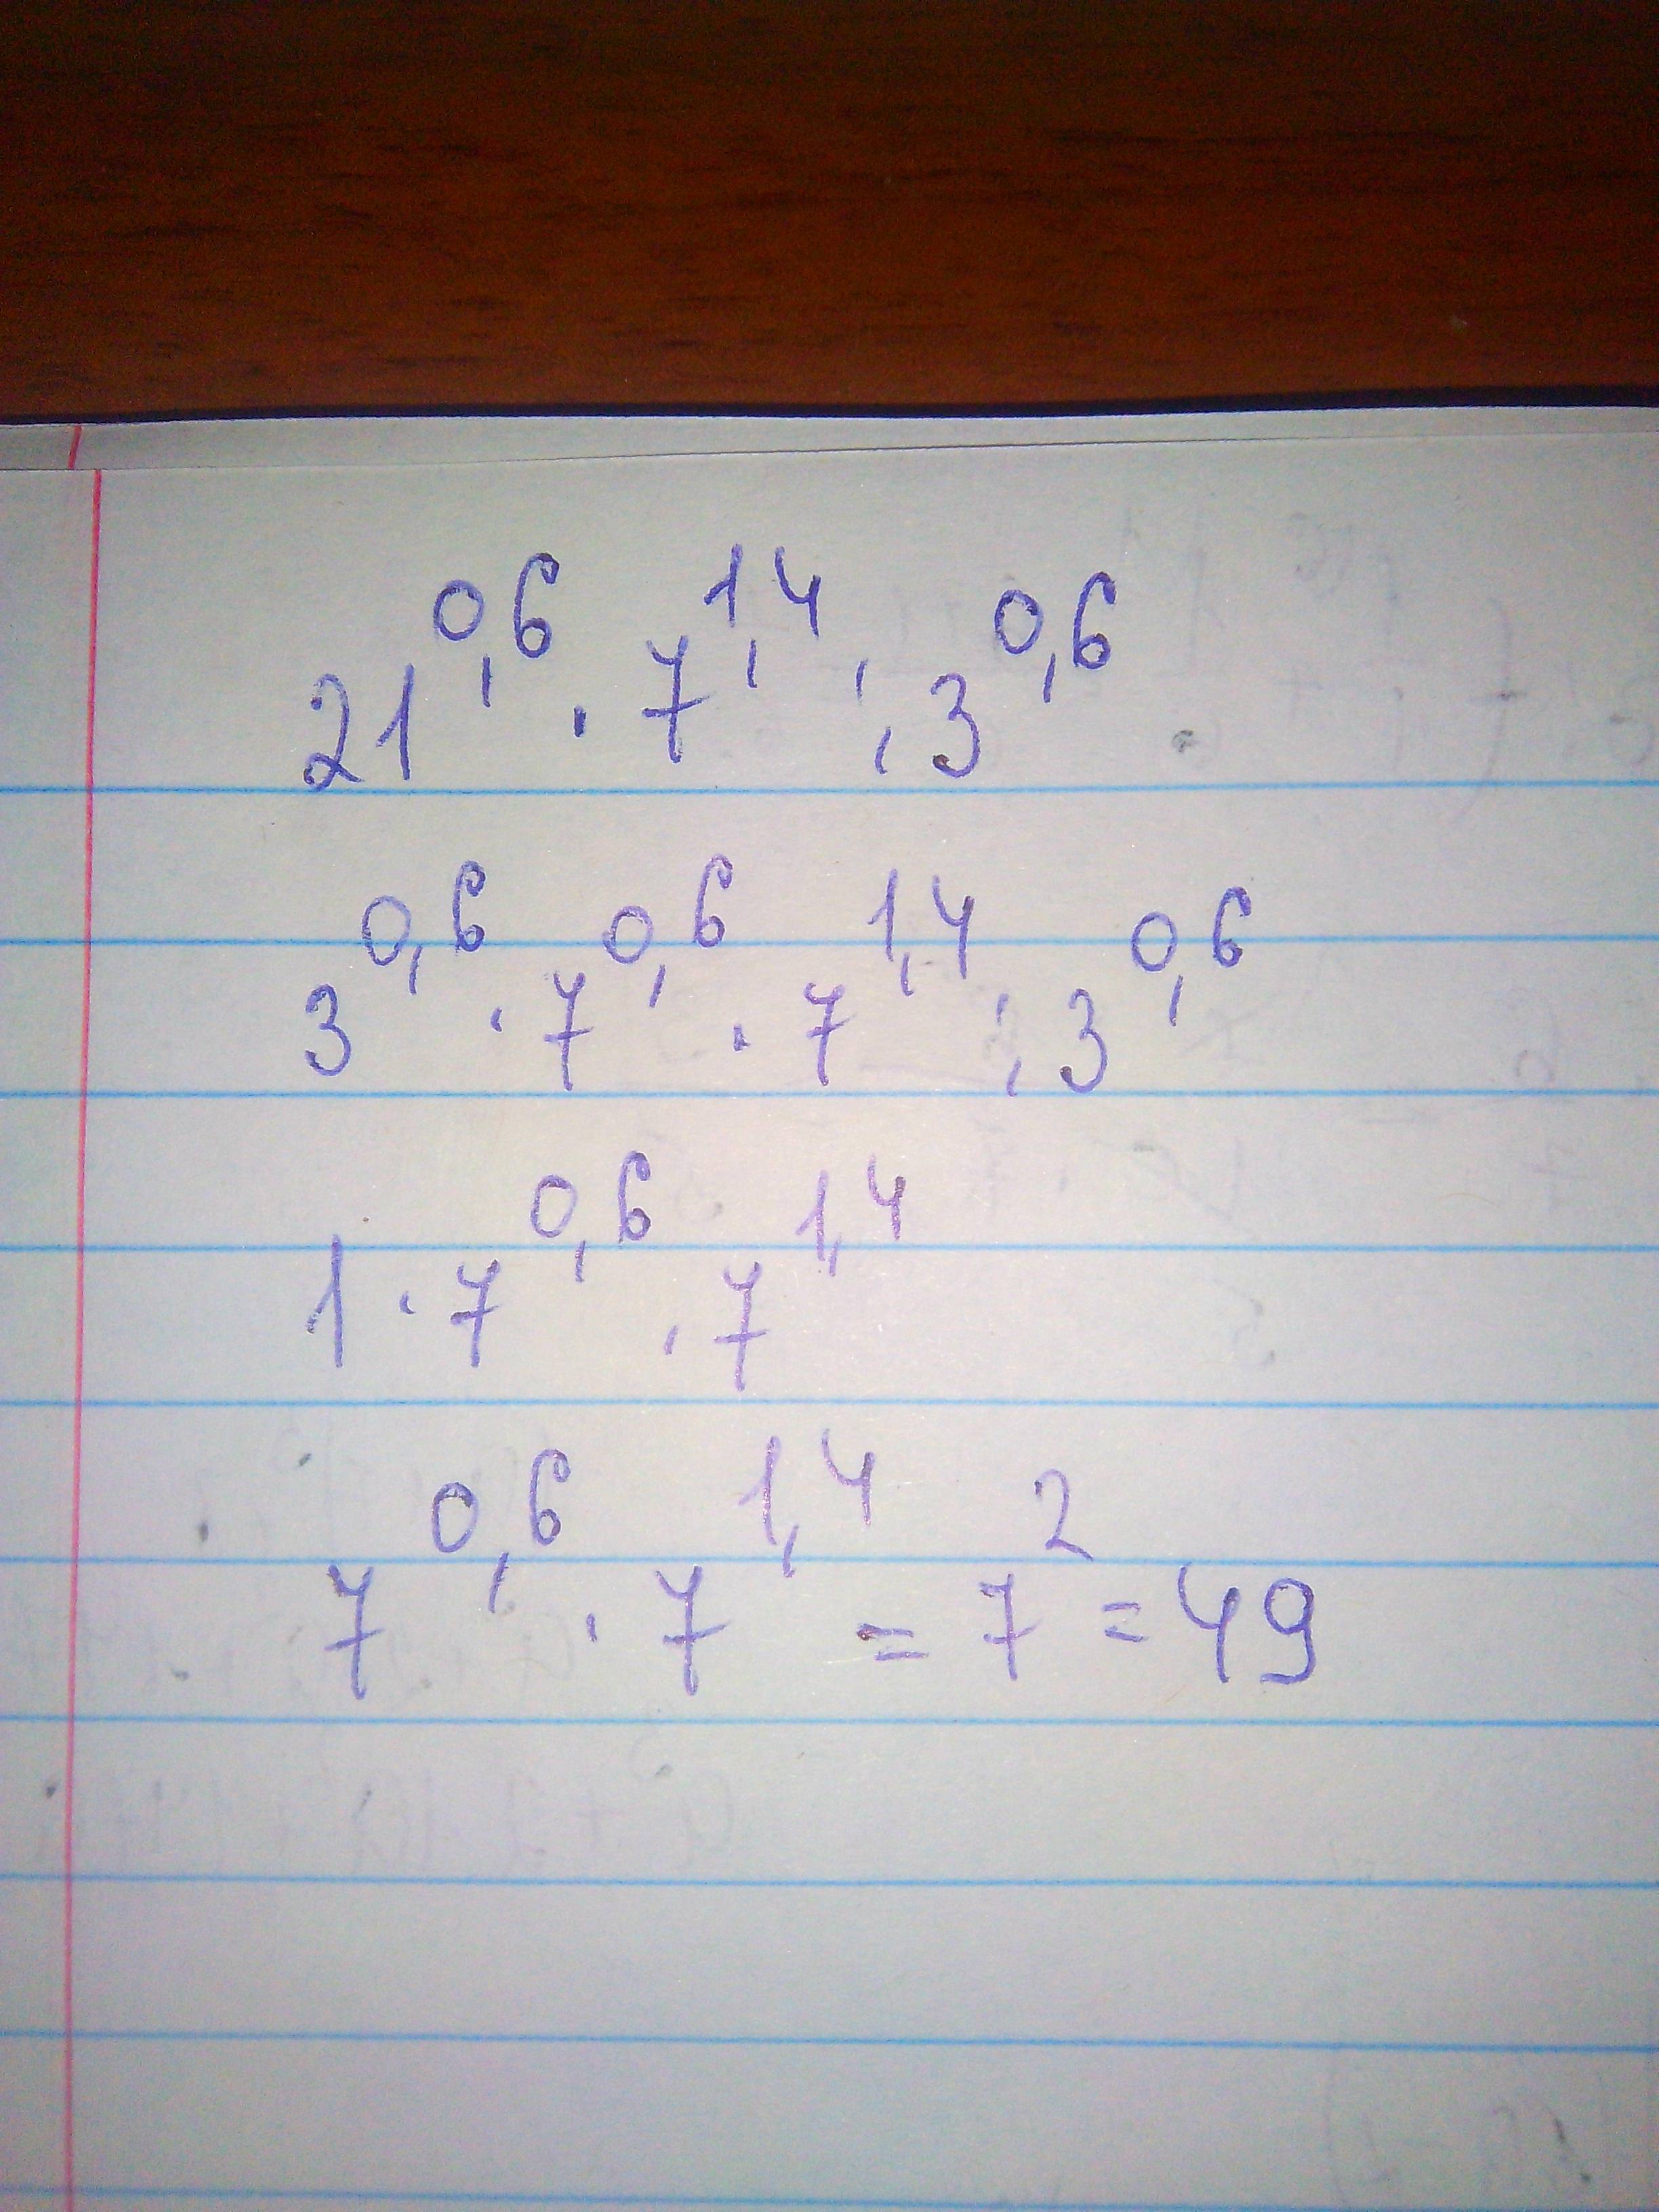 21^0,6 · 7^1,4 : 3^0,6
3^0,6 · 7^0,6 · 7^1,4 : 3^0,6
1 · 7^0,6 · 7^1,4
7^0,6 · 7^1,4 = 7^2 = 49